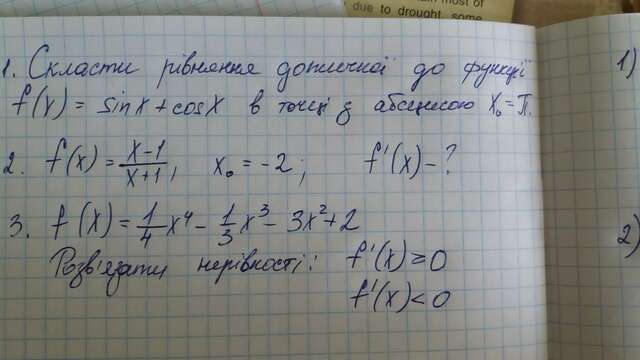 in most of
due to drought, some
1. Скласти рівняння дотичної до функції
f(x) = sinx + cosx в точці з абсцисою x₀ = π.
2. f(x) = (x-1)/(x+1), x₀ = -2; f'(x) - ?
3. f(x) = 1/4 x⁴ - 1/3 x³ - 3x² + 2
Розв'язати нерівності: f'(x) ≥ 0
f'(x) < 0
1)
2)